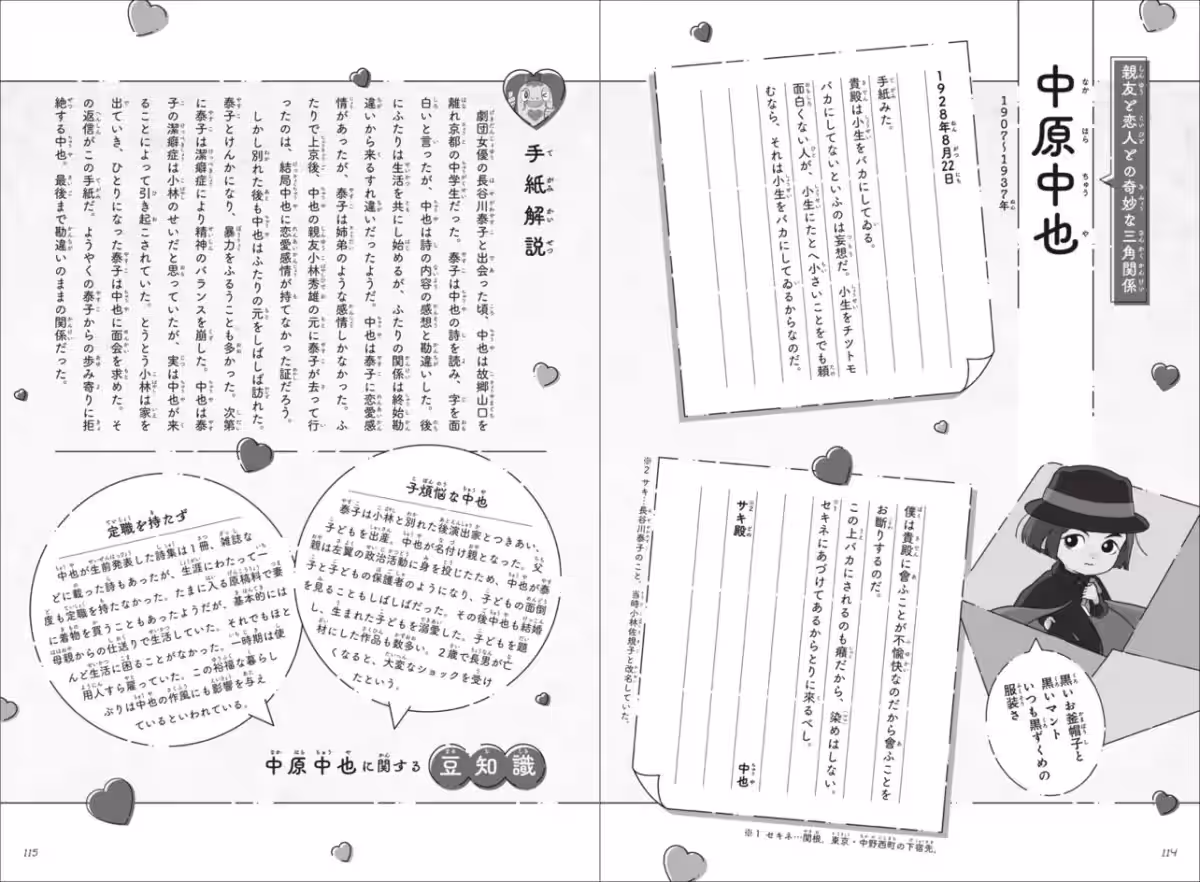 親友と恋人との奇妙な三角関係
中原中也
なかはらちゅうや
1907〜1937年
1928年8月22日
手紙みた。
貴殿は小生をバカにしてゐる。
バカにしてないといふのは妄想だ。小生をチツトモ
面白くない人が、小生にたとへ小さいことをでも頼
むなら、それは小生をバカにしてゐるからなのだ。
僕は貴殿に會ふことが不愉快なのだから會ふことを
お斷りするのだ。
この上バカにされるのも癪だから、染めはしない。
セキネにあづけてあるからとりに來るべし。
中也
サキ殿
※2
※2 サキ…長谷川泰子のこと。当時小林佐規子と改名していた。
※1 セキネ…関根。東京・中野西町の下宿先。
黒いお釜帽子と
黒いマント
いつも黒ずくめの
服装さ
114
手紙解説
てがみかいせつ
劇団女優の長谷川泰子と出会った頃、中也は故郷山口を
離れ京都の中学生だった。泰子は中也の詩を読み、字を面
白いと言ったが、中也は詩の内容の感想と勘違いした。後
にふたりは生活を共にし始めるが、ふたりの関係は終始勘
違いから来るすれ違いだったようだ。中也は泰子に恋愛感
情があったが、泰子は姉弟のような感情しかなかった。ふ
たりで上京後、中也の親友小林秀雄の元に泰子が去って行
ったのは、結局中也に恋愛感情が持てなかった証だろう。
しかし別れた後も中也はふたりの元をしばしば訪れた。
泰子とけんかになり、暴力をふるうことも多かった。次第
に泰子は潔癖症により精神のバランスを崩した。中也は泰
子の潔癖症は小林のせいだと思っていたが、実は中也が来
ることによって引き起こされていた。とうとう小林は家を
出ていき、ひとりになった泰子は中也に面会を求めた。そ
の返信がこの手紙だ。ようやくの泰子からの歩み寄りに拒
絶する中也。最後まで勘違いのままの関係だった。
中原中也に関する豆知識
子煩悩な中也
泰子は小林と別れた後演出家とつきあい、
子どもを出産。中也が名付け親となった。父
親は左翼の政治活動に身を投じたため、中也が泰
子と子どもの保護者のようになり、子どもの面倒
を見ることもしばしばだった。その後中也も結婚
し、生まれた子どもを溺愛した。子どもを題
材にした作品も数多い。2歳で長男が亡
くなると、大変なショックを受け
たという。
定職を持たず
中也が生前発表した詩集は1冊、雑誌な
どに載った詩もあったが、生涯にわたって一
度も定職を持たなかった。たまに入る原稿料で妻
に着物を買うこともあったようだが、基本的には
母親からの仕送りで生活していた。それでもほと
んど生活に困ることがなかった。一時期は使
用人すら雇っていた。この裕福な暮らし
ぶりは中也の作風にも影響を与え
ているといわれている。
115